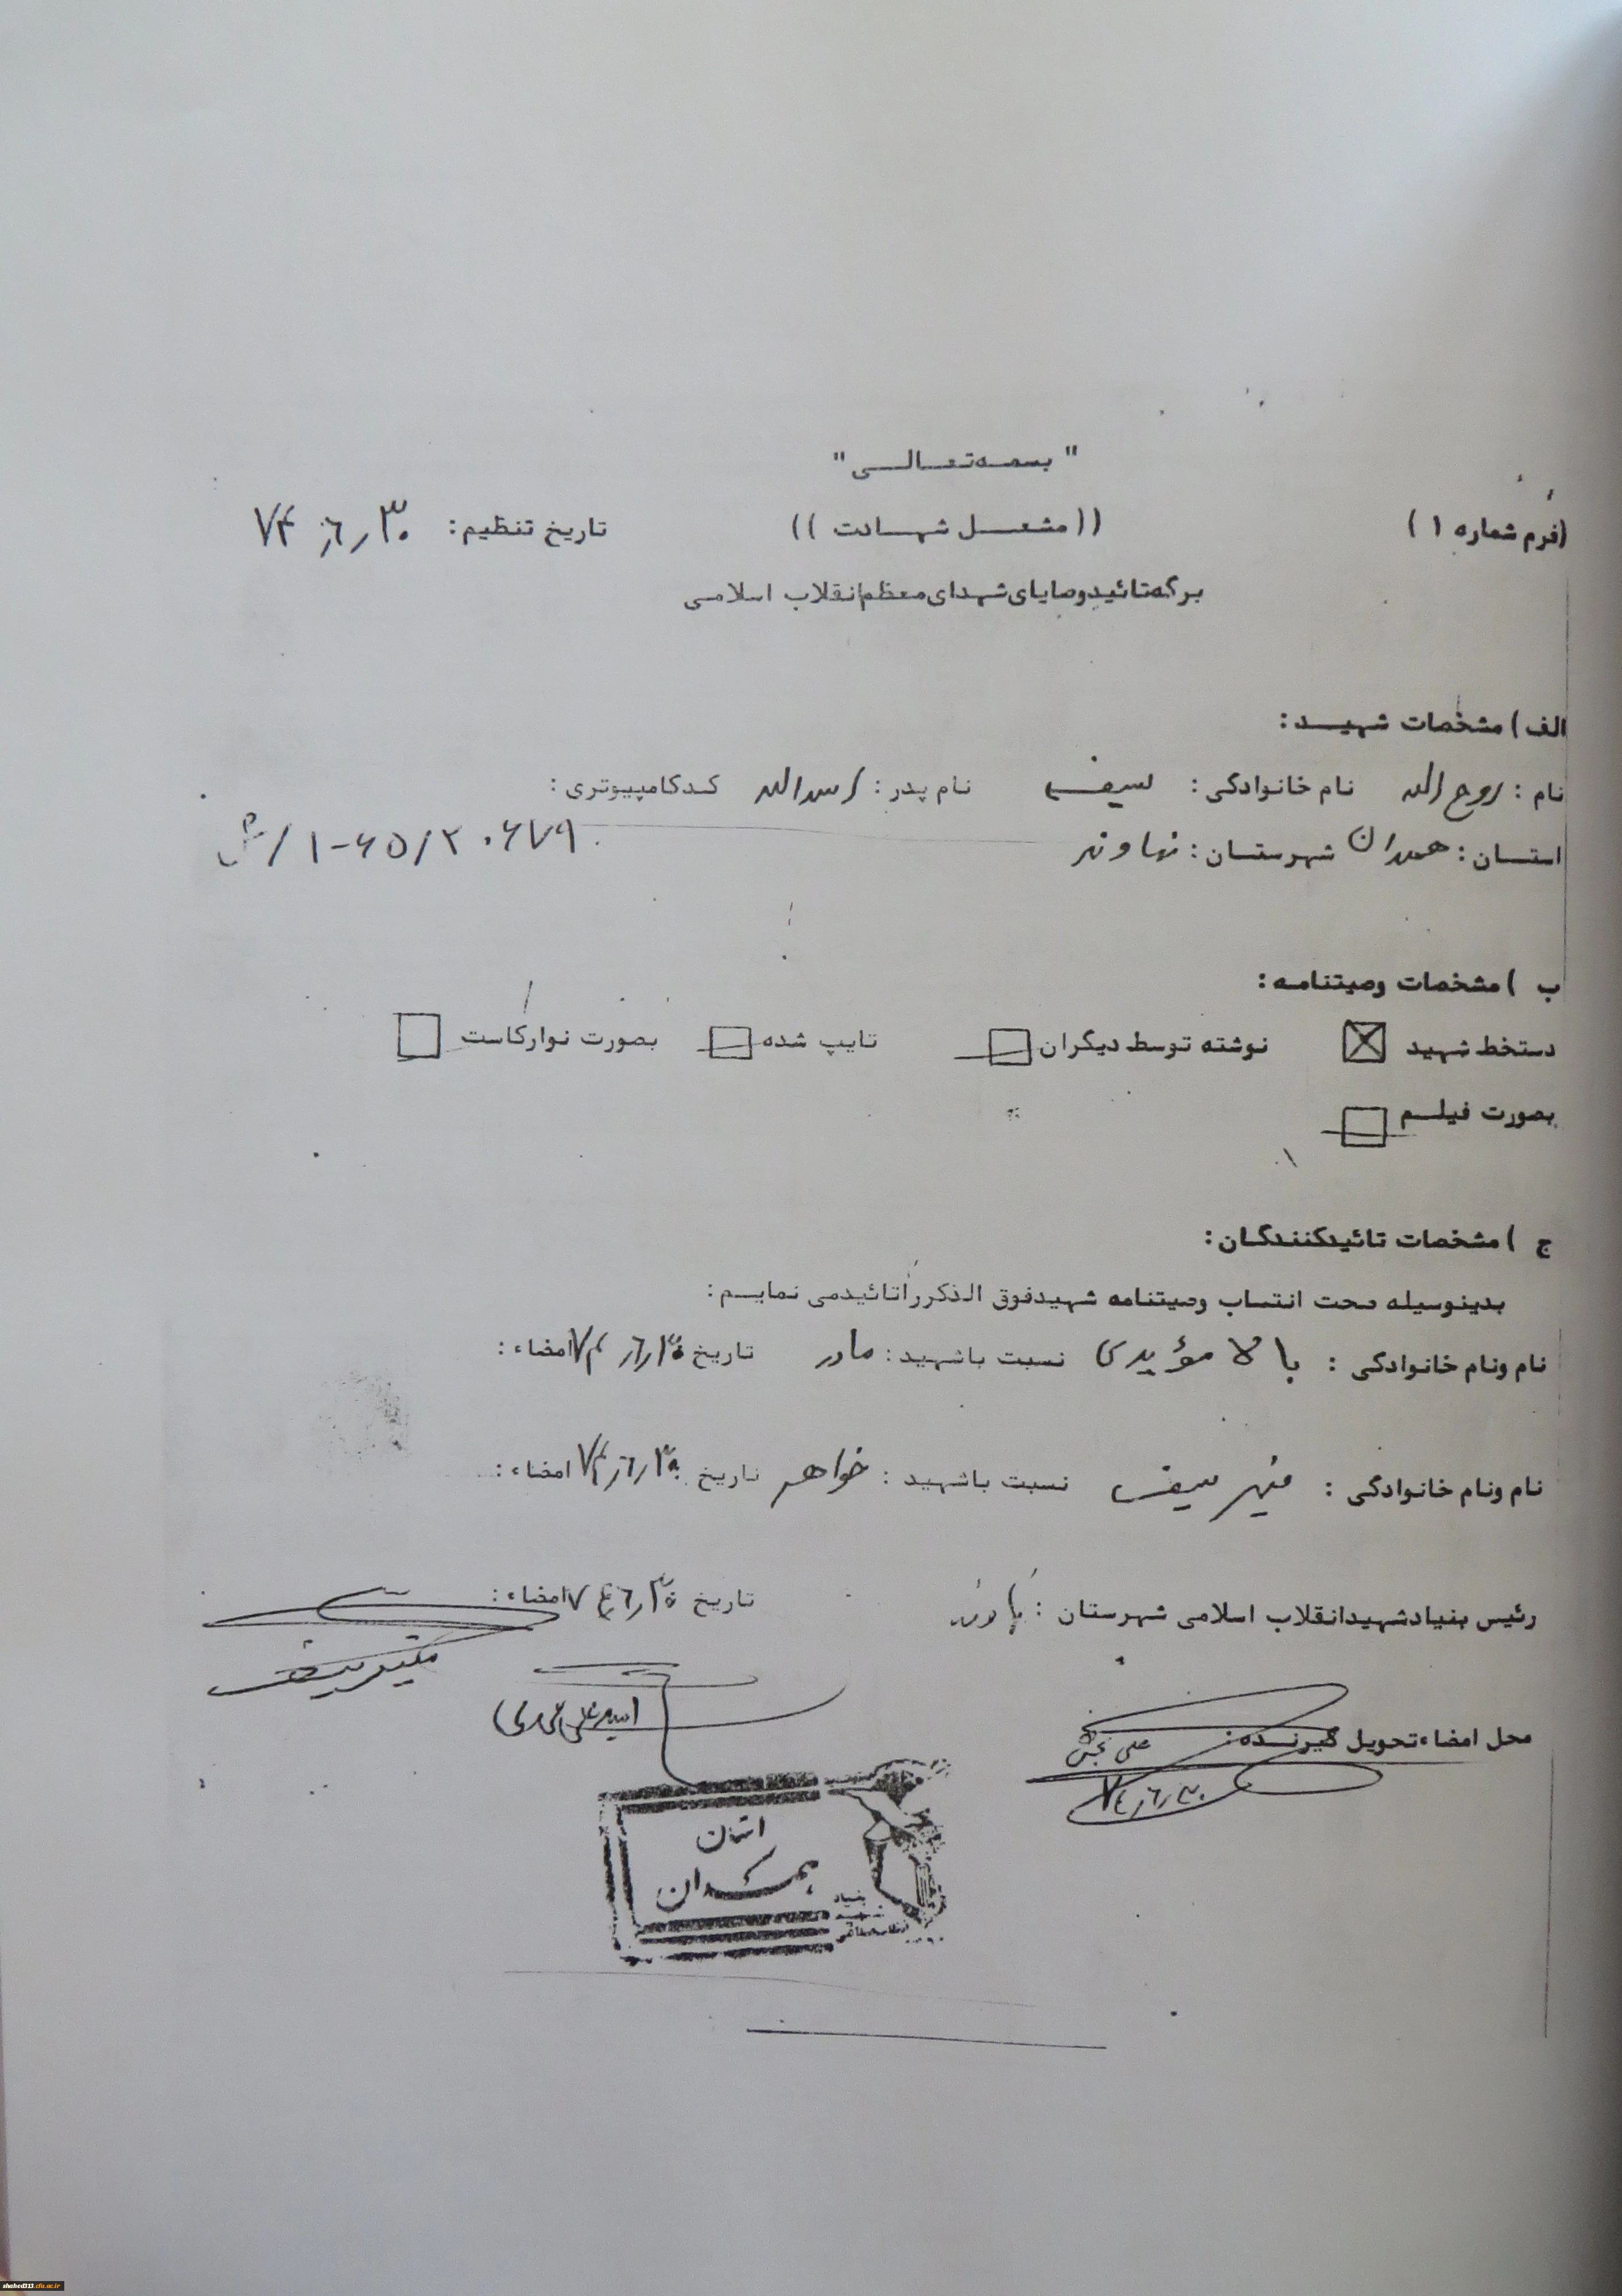 " بسمه‌تعالی "
(فرم شماره ۱ ) ((مشعل شهادت )) تاریخ تنظیم: ۷۴٫۶٫۳۰
برگه‌تائیدوصایای‌شهدای‌معظم‌انقلاب اسلامی
الف ) مشخصات شهید :
نام : روح الله نام خانوادگی : سیف نام پدر : اسدالله کدکامپیوتری :
استان : همدان شهرستان : نهاوند ۱-۶۵/۲۰۶۷۹
ب ) مشخصات وصیتنامه :
دستخط شهید نوشته توسط دیگران تایپ شده بصورت نوارکاست
بصورت فیلم
ج ) مشخصات تائیدکنندگان :
بدینوسیله صحت انتساب وصیتنامه شهیدفوق الذکرراتائیدمی نمایم :
نام ونام خانوادگی : بالا مؤیدی نسبت باشهید : مادر تاریخ ۷۴٫۶٫۳۰ امضاء :
نام ونام خانوادگی : منیر سیف نسبت باشهید : خواهر تاریخ ۷۴٫۶٫۳۰ امضاء :
رئیس بنیادشهیدانقلاب اسلامی شهرستان : تاریخ ۷۴٫۶٫۳۰ امضاء :
منیر سیف
محل امضاءتحویل گیرنده :
۷۴٫۶٫۳۰
استان
همدان
بنیاد
شهید
انقلاب اسلامی
shahed313.cfu.ac.ir